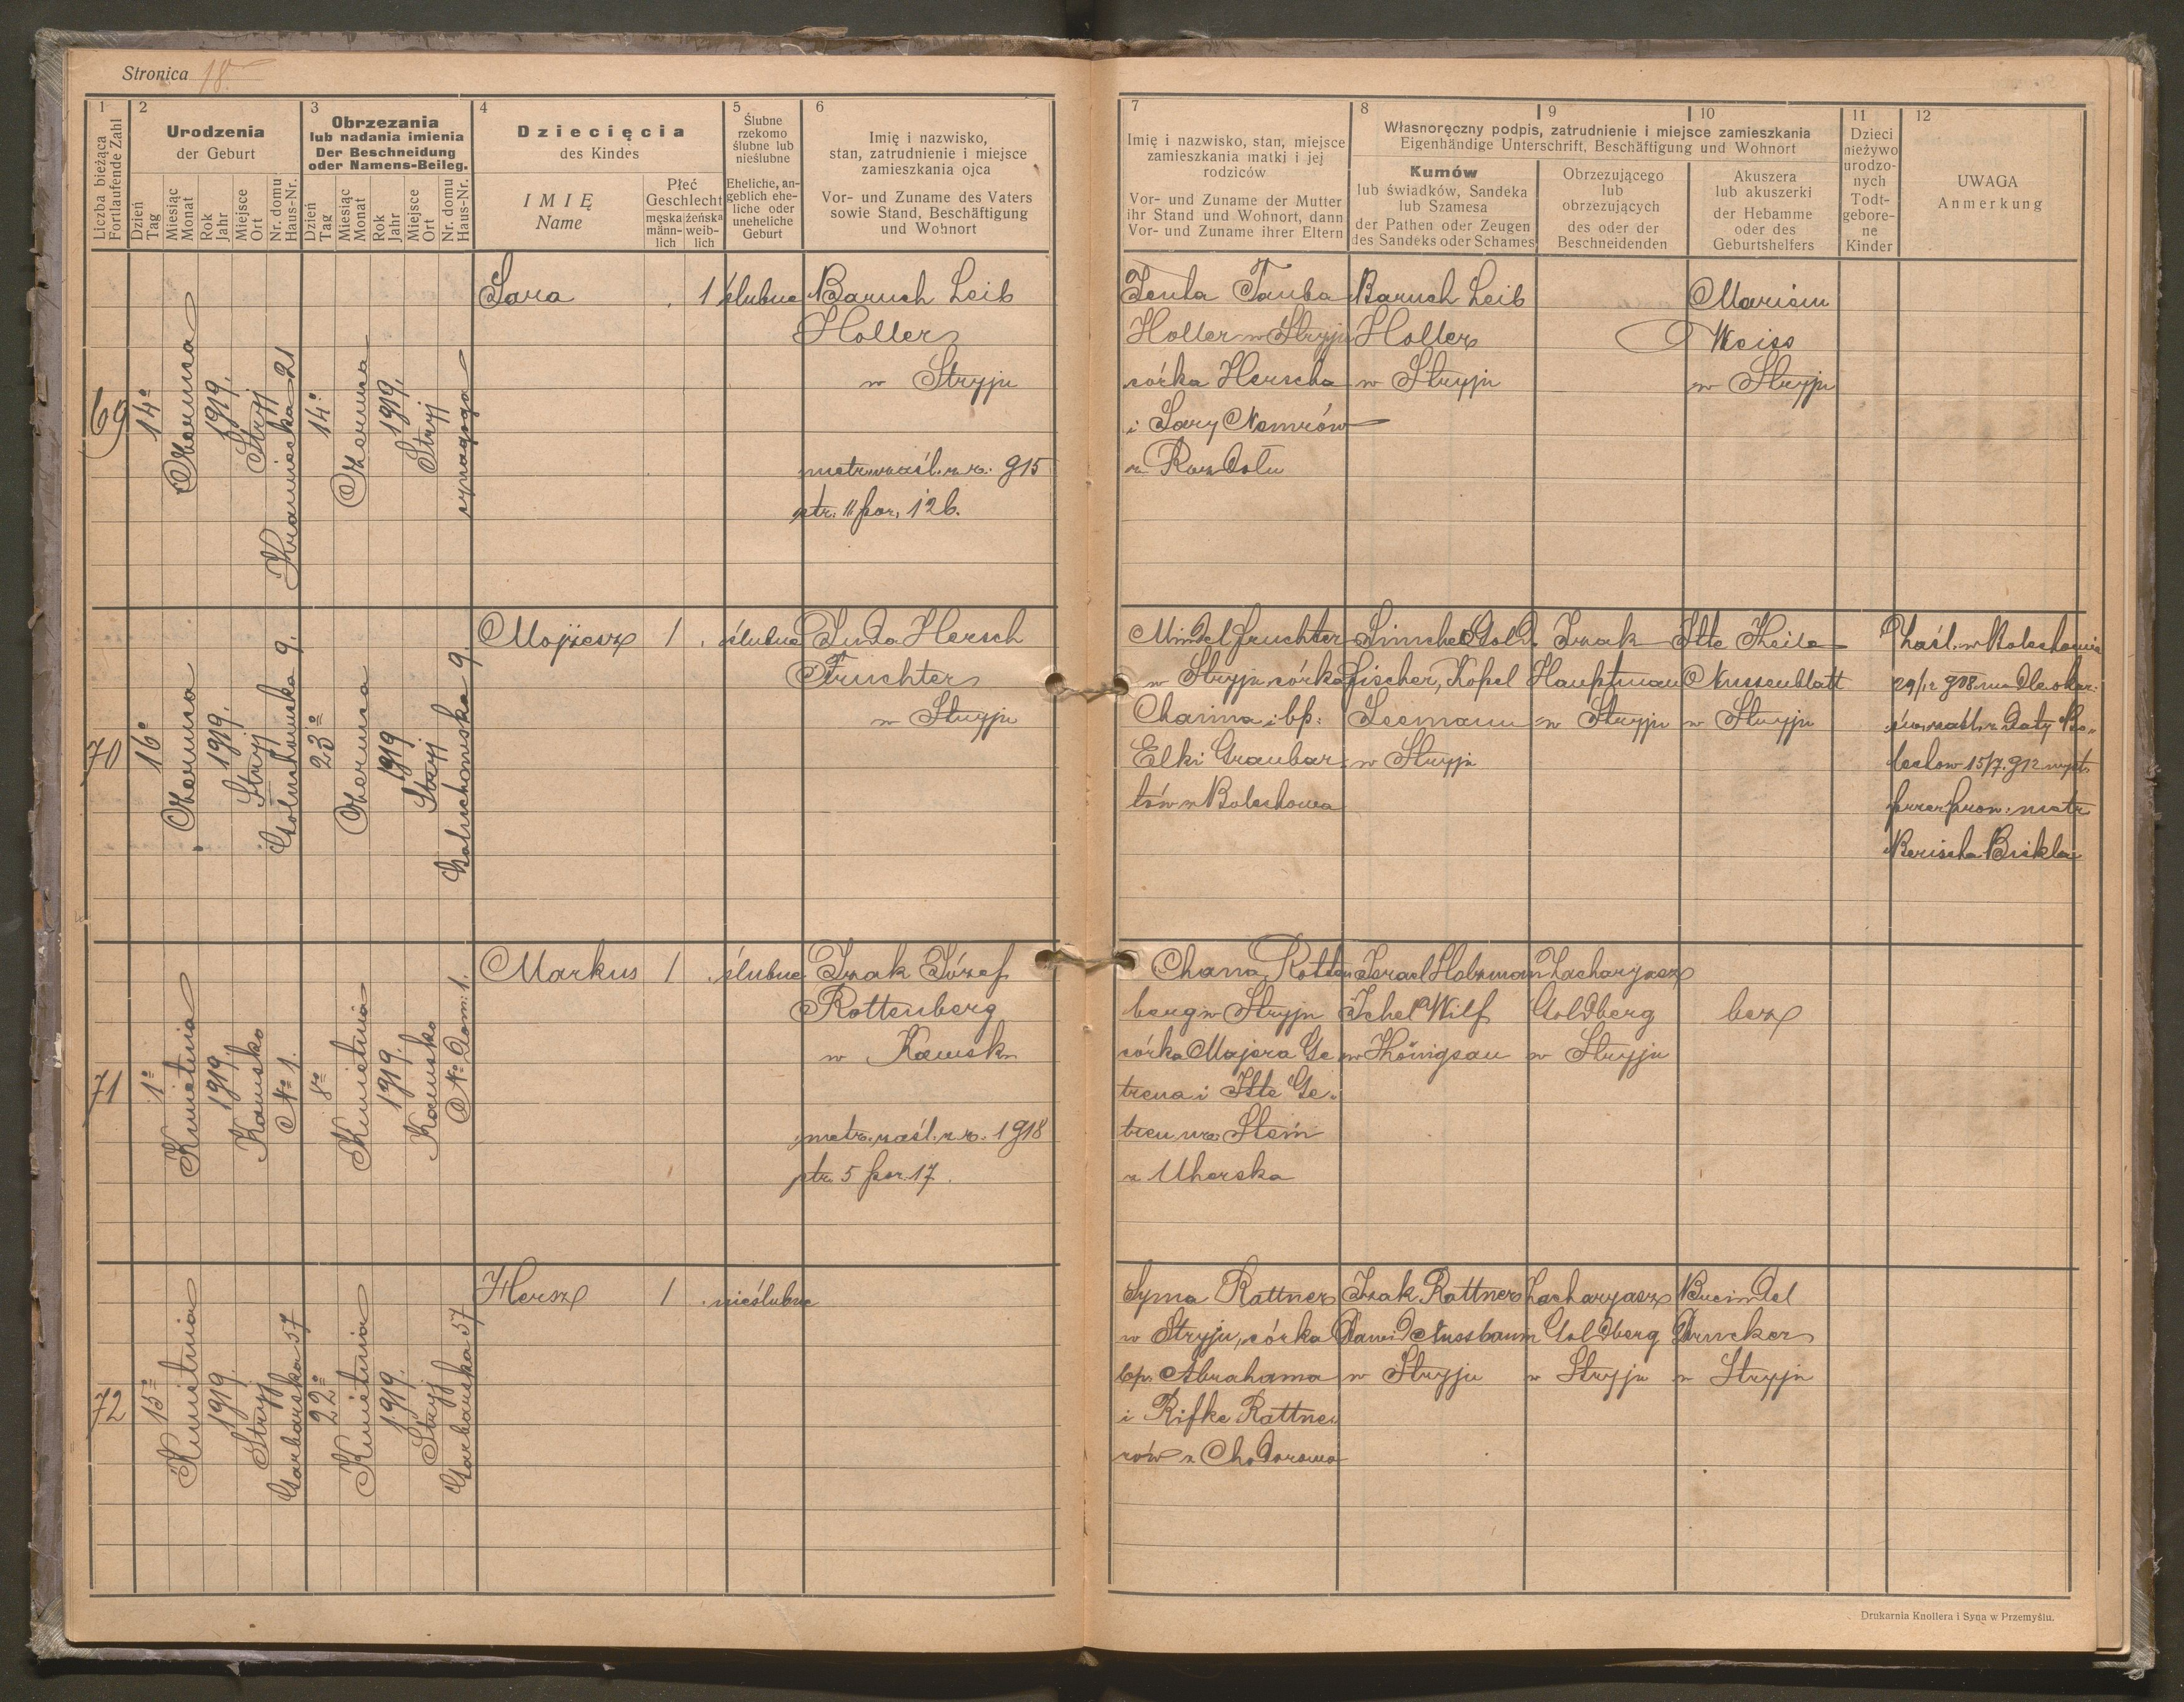 Stronica 18.
1
2
Urodzenia
der Geburt
3
Obrzezania
lub nadania imienia
Der Beschneidung
oder Namens-Beileg.
4
Dziecięcia
des Kindes
5
Ślubne
rzekomo
ślubne lub
nieślubne
Eheliche, an-
geblich ehe-
liche oder
uneheliche
Geburt
6
Imię i nazwisko,
stan, zatrudnienie i miejsce
zamieszkania ojca
Vor- und Zuname des Vaters
sowie Stand, Beschäftigung
und Wohnort
Liczba bieżąca
Fortlaufende Zahl
Dzień
Tag
Miesiąc
Monat
Rok
Jahr
Miejsce
Ort
Nr. domu
Haus-Nr.
Dzień
Tag
Miesiąc
Monat
Rok
Jahr
Miejsce
Ort
Nr. domu
Haus-Nr.
IMIĘ
Name
Płeć
Geschlecht
męska
männ-
lich
żeńska
weib-
lich
7
Imię i nazwisko, stan, miejsce
zamieszkania matki i jej
rodziców
Vor- und Zuname der Mutter
ihr Stand und Wohnort, dann
Vor- und Zuname ihrer Eltern
8
9
10
Własnoręczny podpis, zatrudnienie i miejsce zamieszkania
Eigenhändige Unterschrift, Beschäftigung und Wohnort
Kumów
lub świadków, Sandeka
lub Szamesa
der Pathen oder Zeugen
des Sandeks oder Schames
Obrzezującego
lub
obrzezujących
des oder der
Beschneidenden
Akuszera
lub akuszerki
der Hebamme
oder des
Geburtshelfers
11
Dzieci
nieżywo
urodzo-
nych
Todt-
gebore-
ne
Kinder
12
UWAGA
Anmerkung
69
14º
Czerwca
1919.
Stryj
21
14º
Czerwca
1919.
Stryj
synagoga
Sara
1
ślubne
Baruch Leib
Holler
w Stryju
metr. zaśl. z r. 915
str. 11 poz. 126.
Tauba
Holler w Stryju
córka Herscha
i Sary Nemrów
z Rozdołu
Baruch Leib
Holler
w Stryju
Mariem
Weiss
w Stryju
70
16º
Czerwca
1919.
Stryj
Gołuchowska 9.
23º
Czerwca
1919
Stryj
Gołuchowska 9.
Mojżesz
1
ślubne
Juda Hersch
Fruchter
w Stryju
Mindel Fruchter
w Stryju córka
Chaima i bp:
Elki Graubar-
tów z Bolechowa
Simche Gold
fischer, Kopel
Seemann
w Stryju
Izak
Hauptman
w Stryju
Itte Theile
Nussenblatt
w Stryju
Zaśl. w Bolechowie
zaśl. z daty Bo-
lechow 15/7. 912 wyst.
przez prow. metr.
Berischa Bickla
71
1º
Kwietnia
1919.
Kawsko
Nº 1.
8º
Kwietnia
1919.
Kawsko
Nº Dom: 1.
Markus
1
ślubne
Izak Józef
Rottenberg
w Kawsku
metr. zaśl. z r. 1918
str. 5 poz. 17.
Chana Rotten
berg w Stryju
córka Majera Ge
treua i Itte Ge-
treu ur. Stein
z Uherska
Israel Holzman
Ichel Wilf
w Königsau
Zacharyasz
Goldberg
w Stryju
bez
72
15º
Kwietnia
1919.
Stryj
Garbarska 57
22º
Kwietnia
1919.
Stryj
Garbarska 57
Hersz
1
nieślubne
Syma Rattner
w Stryju, córka
bp. Abrahama
i Rifke Rattne
rów z Chodorowa
Izak Rattner
Dawid Nussbaum
w Stryju
Zacharyasz
Goldberg
w Stryju
Breindel
Drucker
w Stryju
Drukarnia Knollera i Syna w Przemyślu.